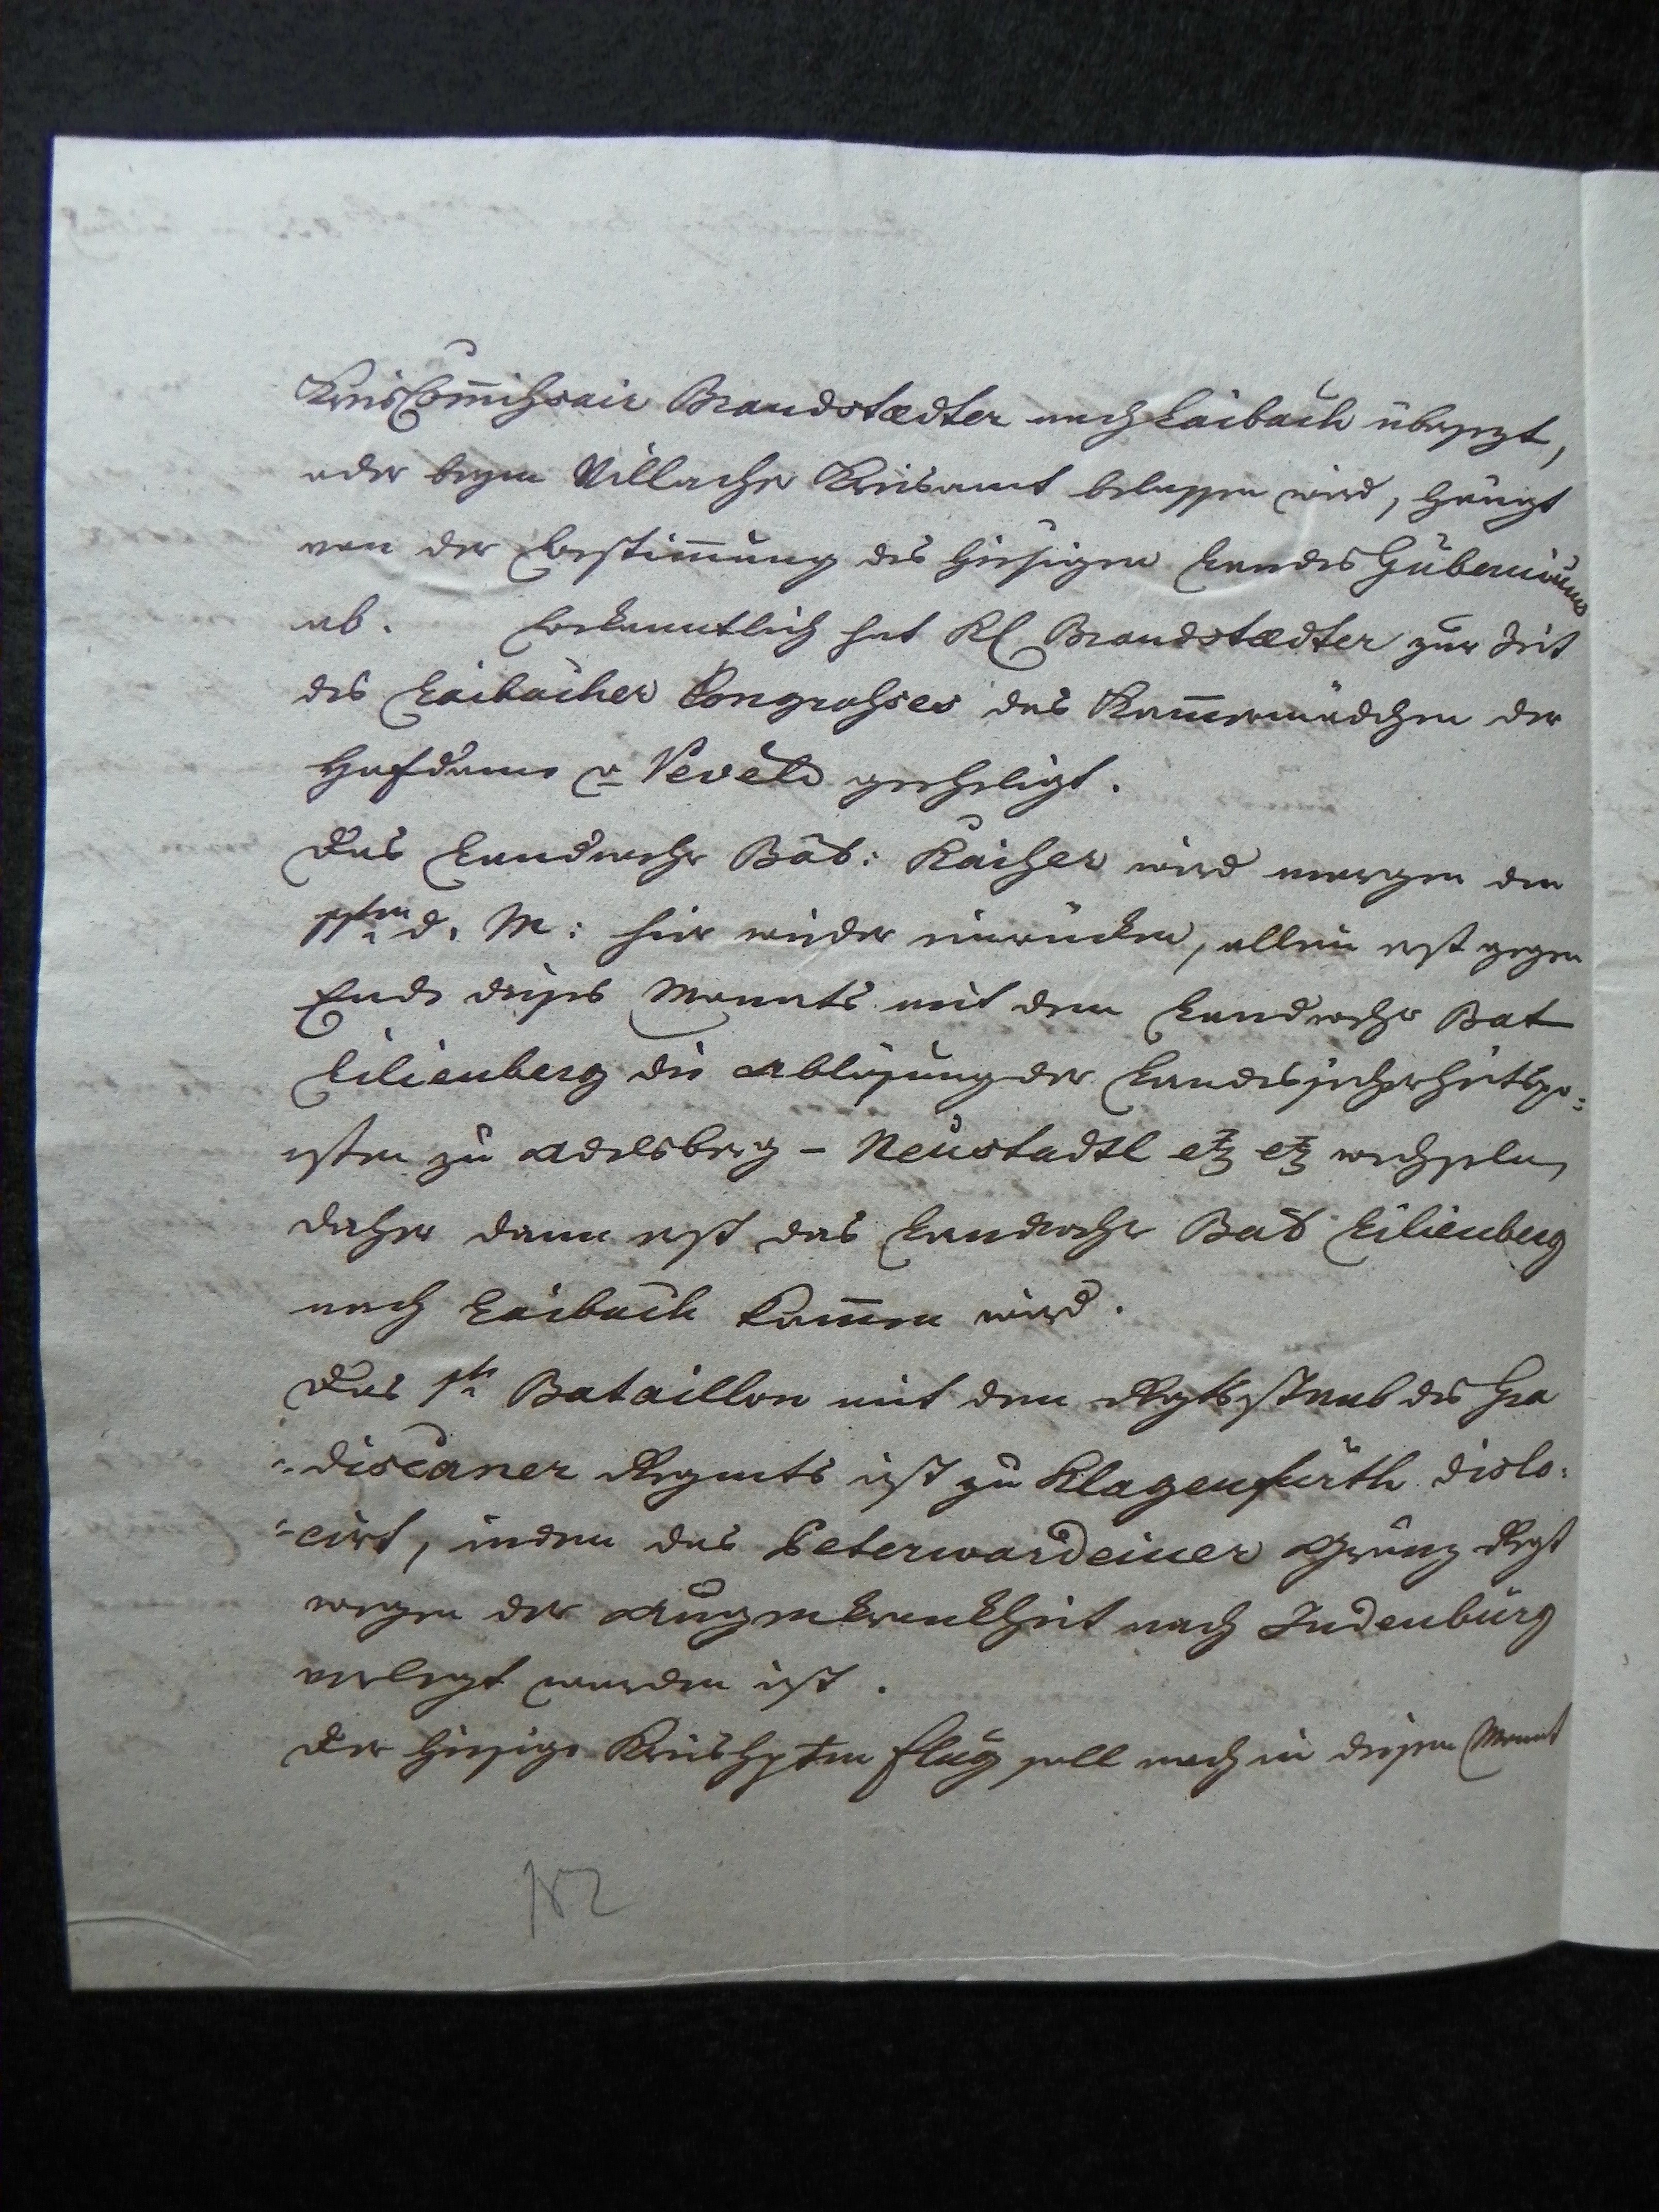 KreisCom̅ihsair Brandstædter nach Laibach übersezt,
oder beym Villacher Kreisamt belassen wird, hängt
von der Bestim̅ung des hiesigen Landes Guberniums
ab. Bekanntlich hat Brandstædter zur Zeit
des Laibacher Congrehses das Kam̅ermädchen der
Hofdame v geehligt.
Das Landwehr Bat: Kaiher wird morgen den
d. M: hier wieder einrücken, allein erst gegen
Ende dieses Monats mit dem Landwehr Bat
Lilienberg die Ablösung der Landessicherheitspo:
sten zu Adelsberg – Neustadtl etz etz wechseln,
daher dann erst das Landwehr Bat Lilienberg
nach Laibach kom̅en wird.
Das 1te Bataillon mit dem Regtsstaab des Gra
:discaner Regmts ist zu Klagenfurth dislo:
:cirt, indem das Peterwardeiner Gränz Regt
wegen der Augenkrankheit nach Judenburg
verlegt worden ist.
Der hiesige Kreishptm Flug soll noch in diesem Monat
152